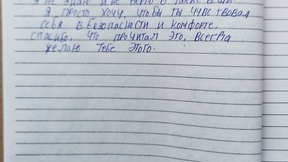 Я НЕ ЗНАЮ И НЕ ВЕРЮ В ТАКИЕ ВЕЩИ.
Я ПРОСТО ХОЧУ, ЧТОБЫ ТЫ ЧУВСТВОВАЛ
СЕБЯ В БЕЗОПАСНОСТИ И КОМФОРТЕ.
СПАСИБО, ЧТО ПРОЧИТАЛ ЭТО, ВСЕГДА
ЖЕЛАЮ ТЕБЕ ЭТОГО.